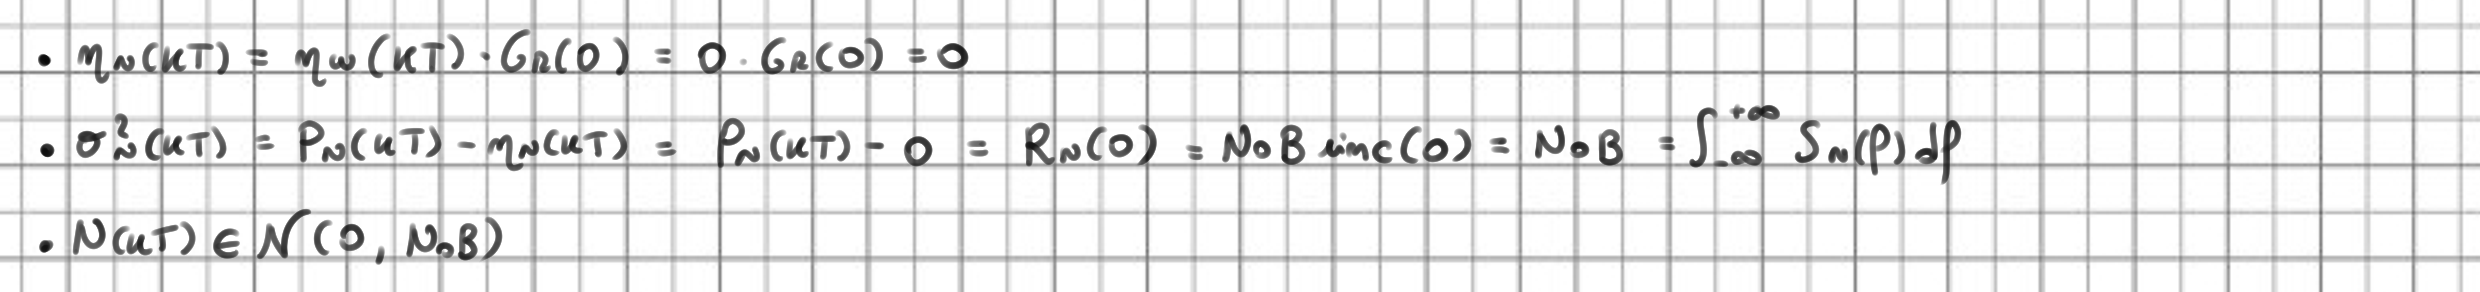 • η_N(kT) = η_W(kT) · G_R(0) = 0 · G_R(0) = 0
• σ²_N(kT) = P_N(kT) - η_N(kT) = P_N(kT) - 0 = R_N(0) = N₀B sinc(0) = N₀B = ∫_{-∞}^{+∞} S_N(f) df
• N(kT) ∈ 𝒩(0, N₀B)